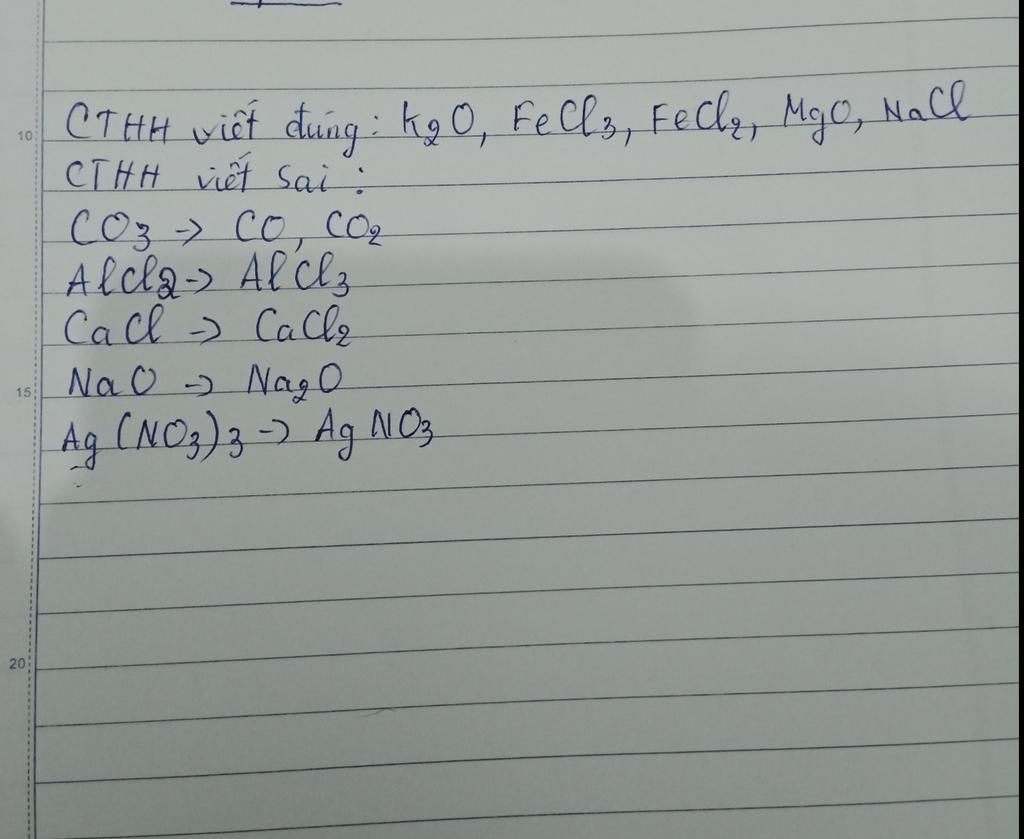 CTHH viết đúng: K2O, FeCl3, FeCl2, MgO, NaCl
10
CTHH viết sai:
CO3 -> CO, CO2
AlCl2 -> AlCl3
CaCl -> CaCl2
NaO -> Na2O
15
Ag(NO3)3 -> AgNO3
20